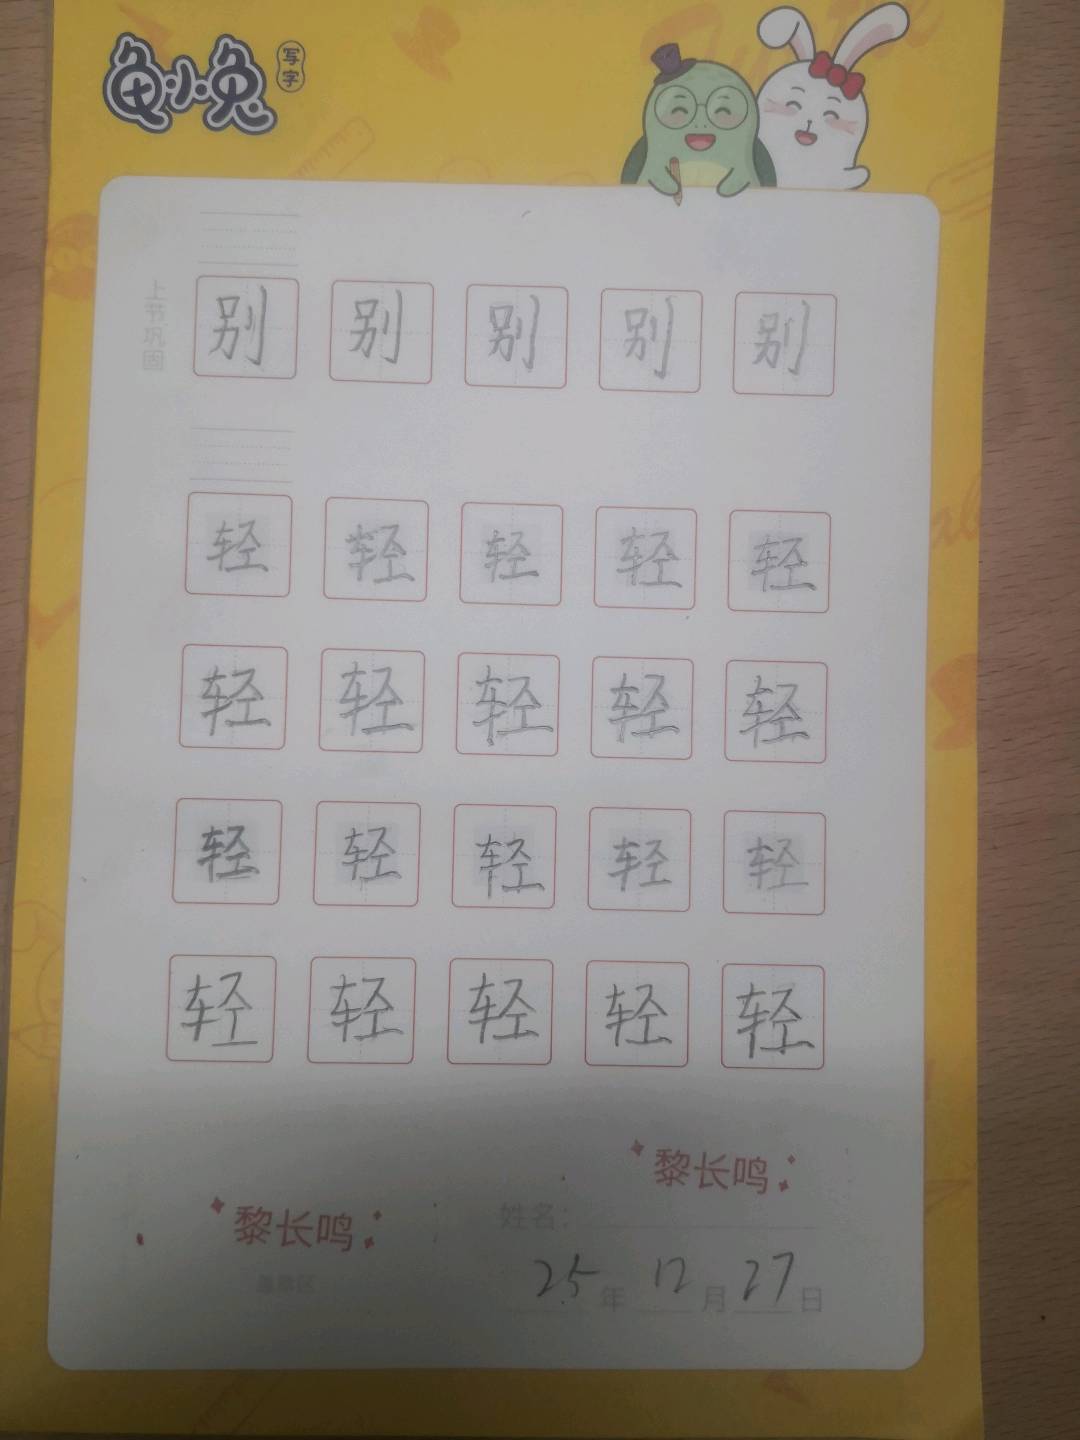 龟小兔
写字
上节巩固
别 别 别 别 别
轻 轻 轻 轻 轻
轻 轻 轻 轻 轻
轻 轻 轻 轻 轻
轻 轻 轻 轻 轻
黎长鸣
黎长鸣
姓名：
25年12月27日